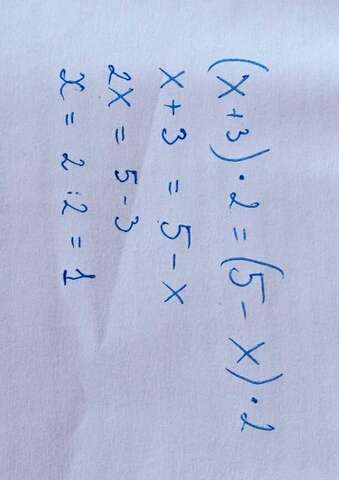 (x+3)·2=(5-x)·2
x+3=5-x
2x=5-3
x=2:2=1